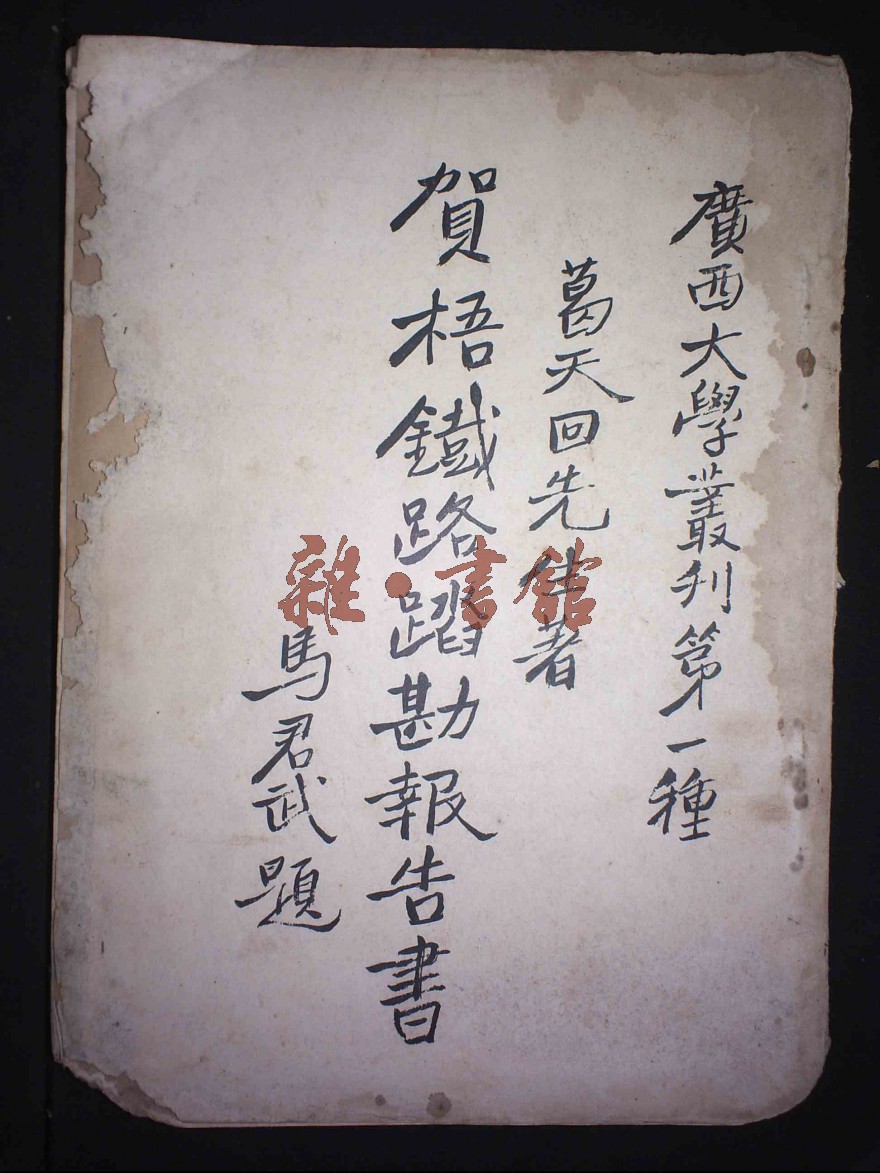 廣西大學叢刋第一種
葛天回先生著
賀梧鐵路踏勘報告書
馬君武題
雜·書館